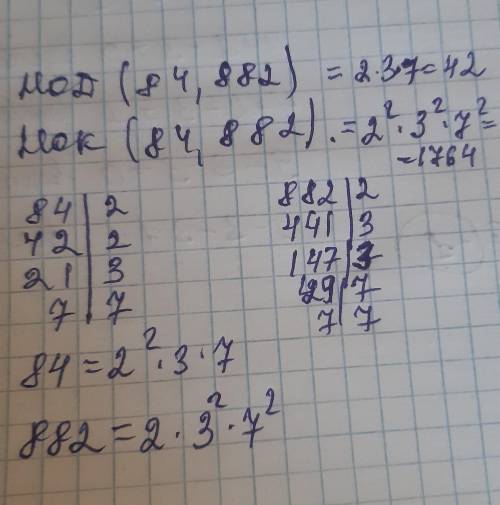 НОД (84, 882) = 2·3·7=42
НОК (84, 882). = 2²·3²·7²=
=1764
84|2
42|2
21|3
7|7
882|2
441|3
147|3
49|7
7|7
84=2²·3·7
882=2·3²·7²